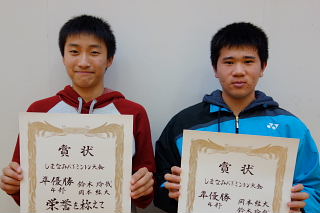 賞状
しまなみバドミントン大会
準優勝 鈴木玲哉
4部 岡本柊大
栄誉と称えて
賞状
しまなみバドミントン大会
準優勝 鈴木玲哉
4部 岡本柊大
YONEX